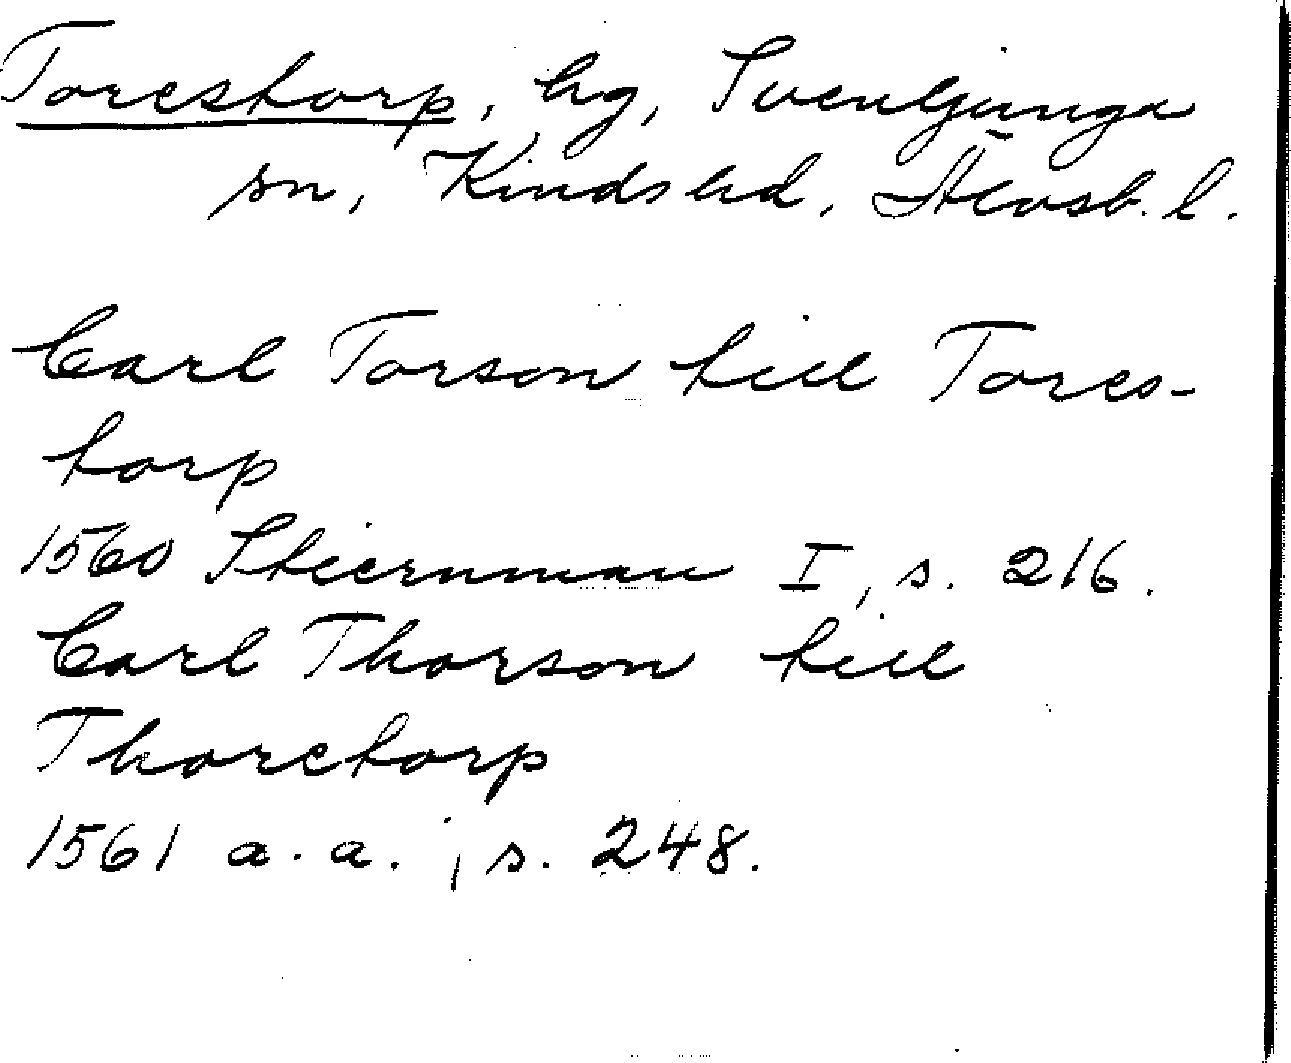 Torestorp, hg, Svenljunga
sn, Kinds hd, Älvsb. l.
Carl Torson till Tores-
torp
1560 Stiernman I, s. 216.
Carl Thorson till
Thoretorp
1561 a. a., s. 248.